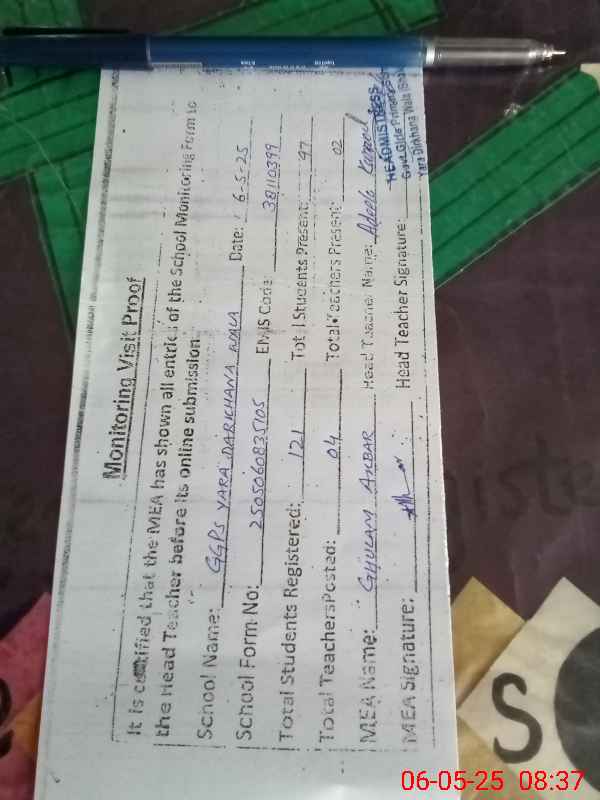 Monitoring Visit Proof
It is certified that the MEA has shown all entries of the School Monitoring Form to
the Head Teacher before its online submission.
School Name: GGPS YARA DARKHANA WALA Date: 6-5-25
School Form No: 2505060835105 EMIS Code: 38110399
Total Students Registered: 121 Total Students Present: 97
Total Teachers Posted: 04 Total Teachers Present: 02
MEA Name: GHULAM AKBAR Head Teacher Name: Adeela Kanwal
MEA Signature: Head Teacher Signature:
HEADMISTRESS
Govt. Girls Primary
Yara Dirkhana Wala
S
06-05-25 08:37